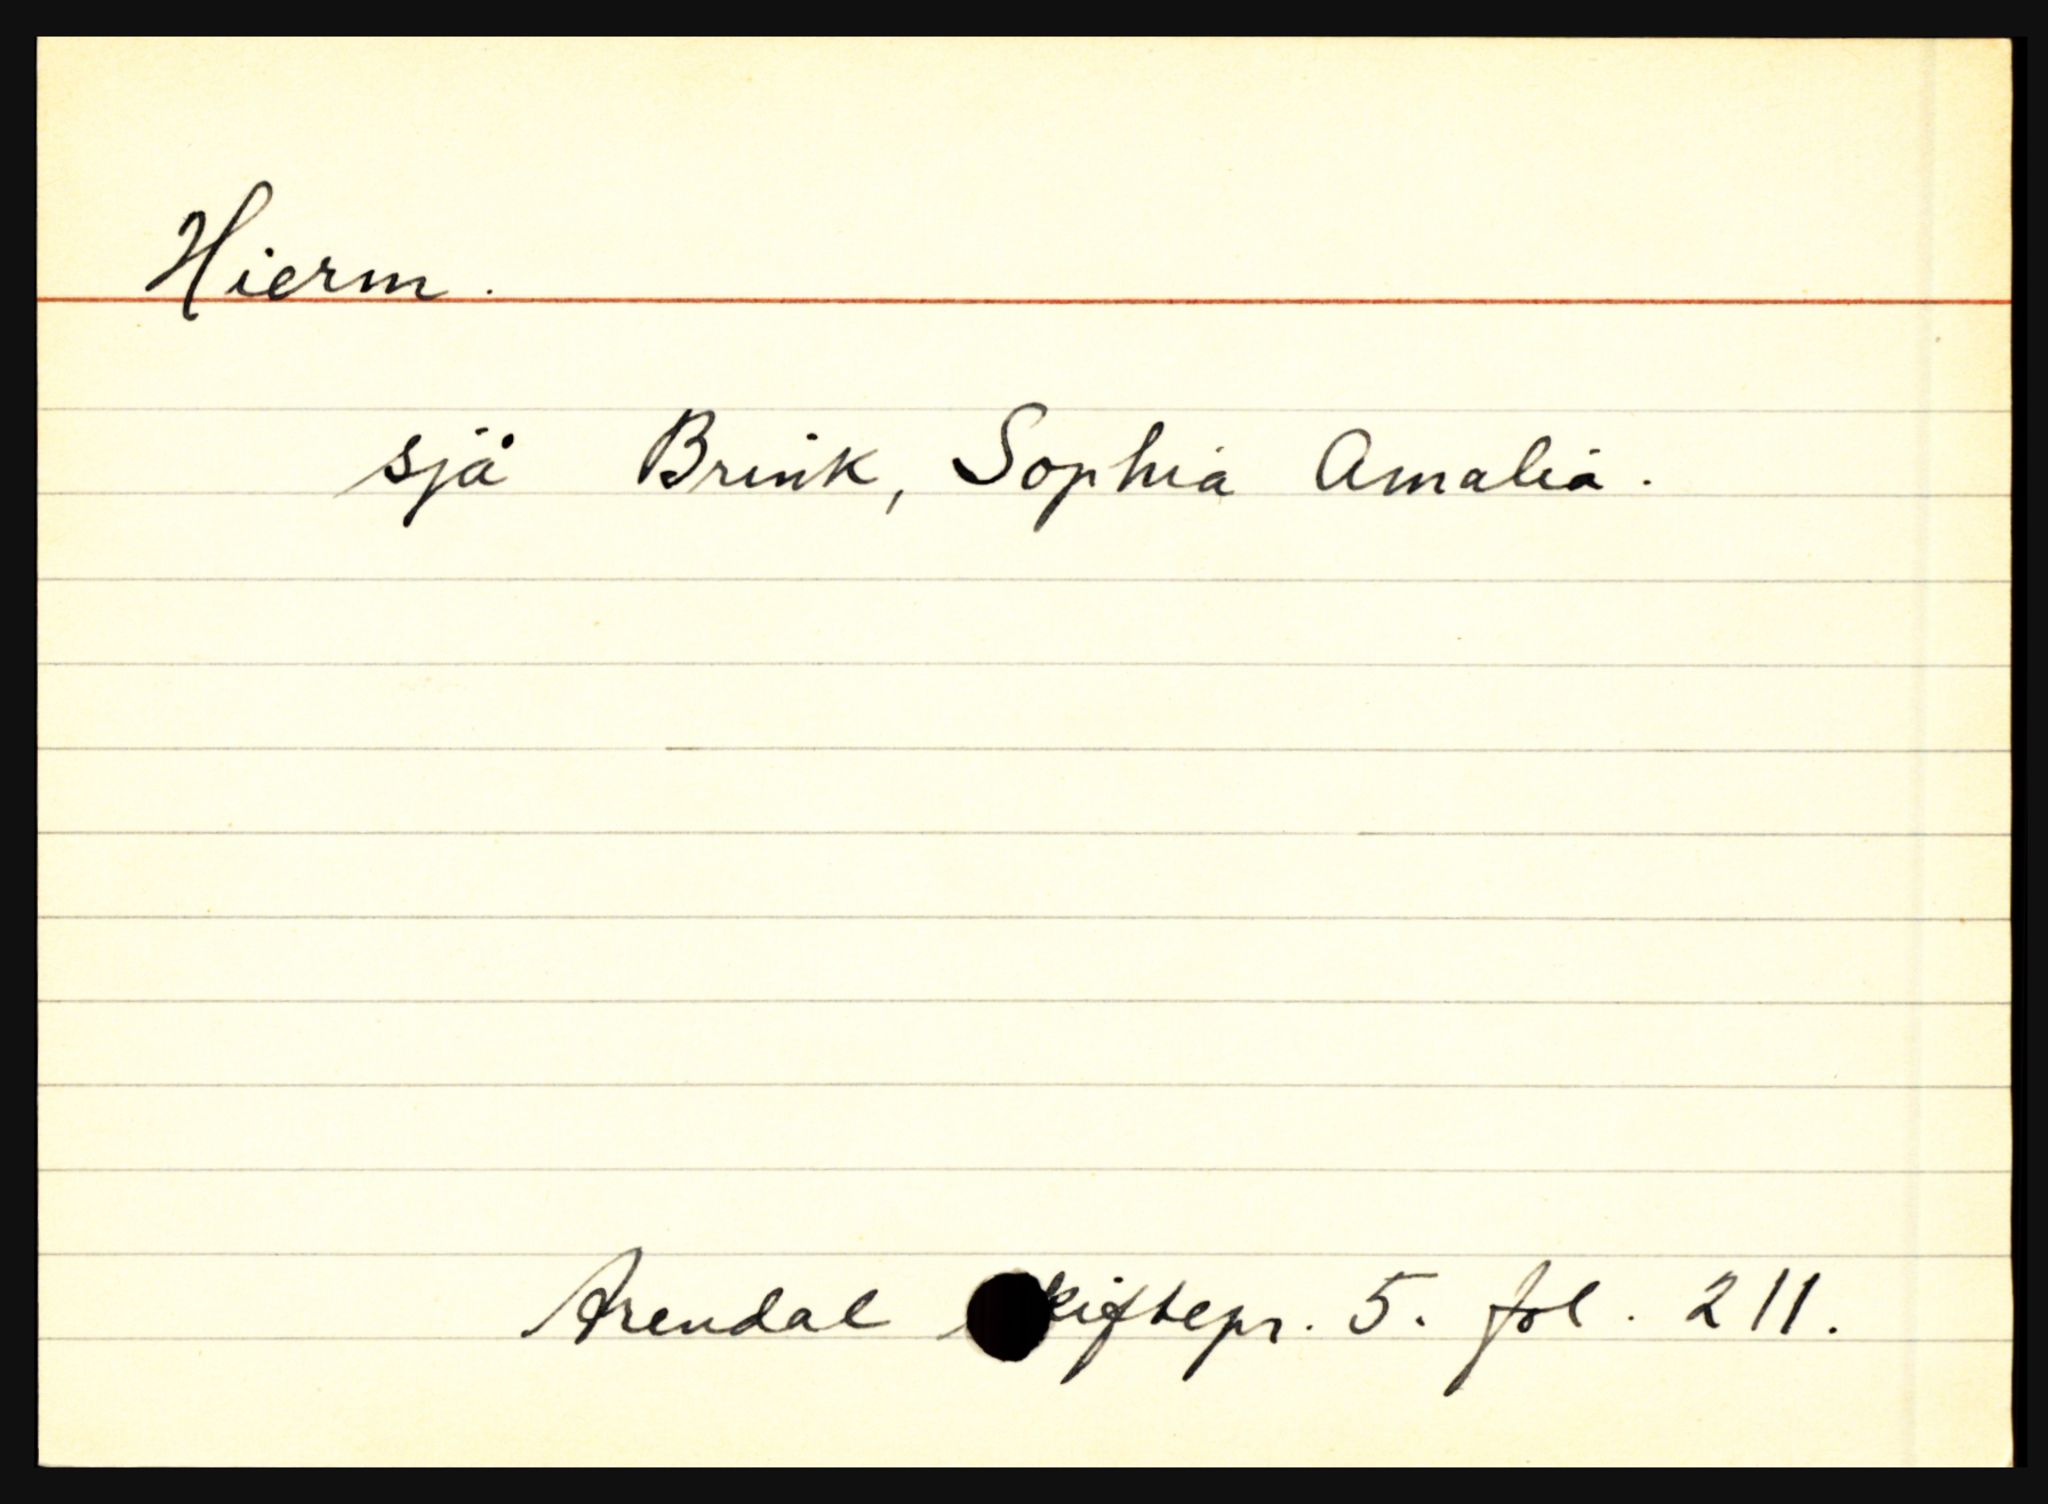 Hierm.
sjå Brink, Sophia Amalia.
Arendal skiftepr. 5. fol. 211.